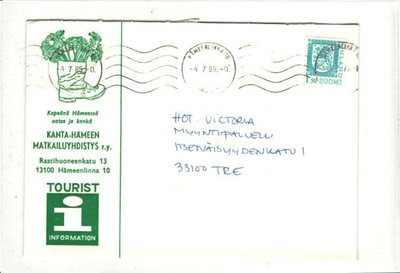 HÄMEENLINNA 10
-4.7.85.-0.
-4.7.85.-0.
1,50 SUOMI
Kepeänä Hämeessä
aatos ja kenkä
KANTA-HÄMEEN
MATKAILUYHDISTYS r.y.
Raatihuoneenkatu 13
13100 Hämeenlinna 10
TOURIST
i
INFORMATION
HOT. VICTORIA
MYYNTIPALVELU
ITSENÄISYYDENKATU 1
33100 TRE